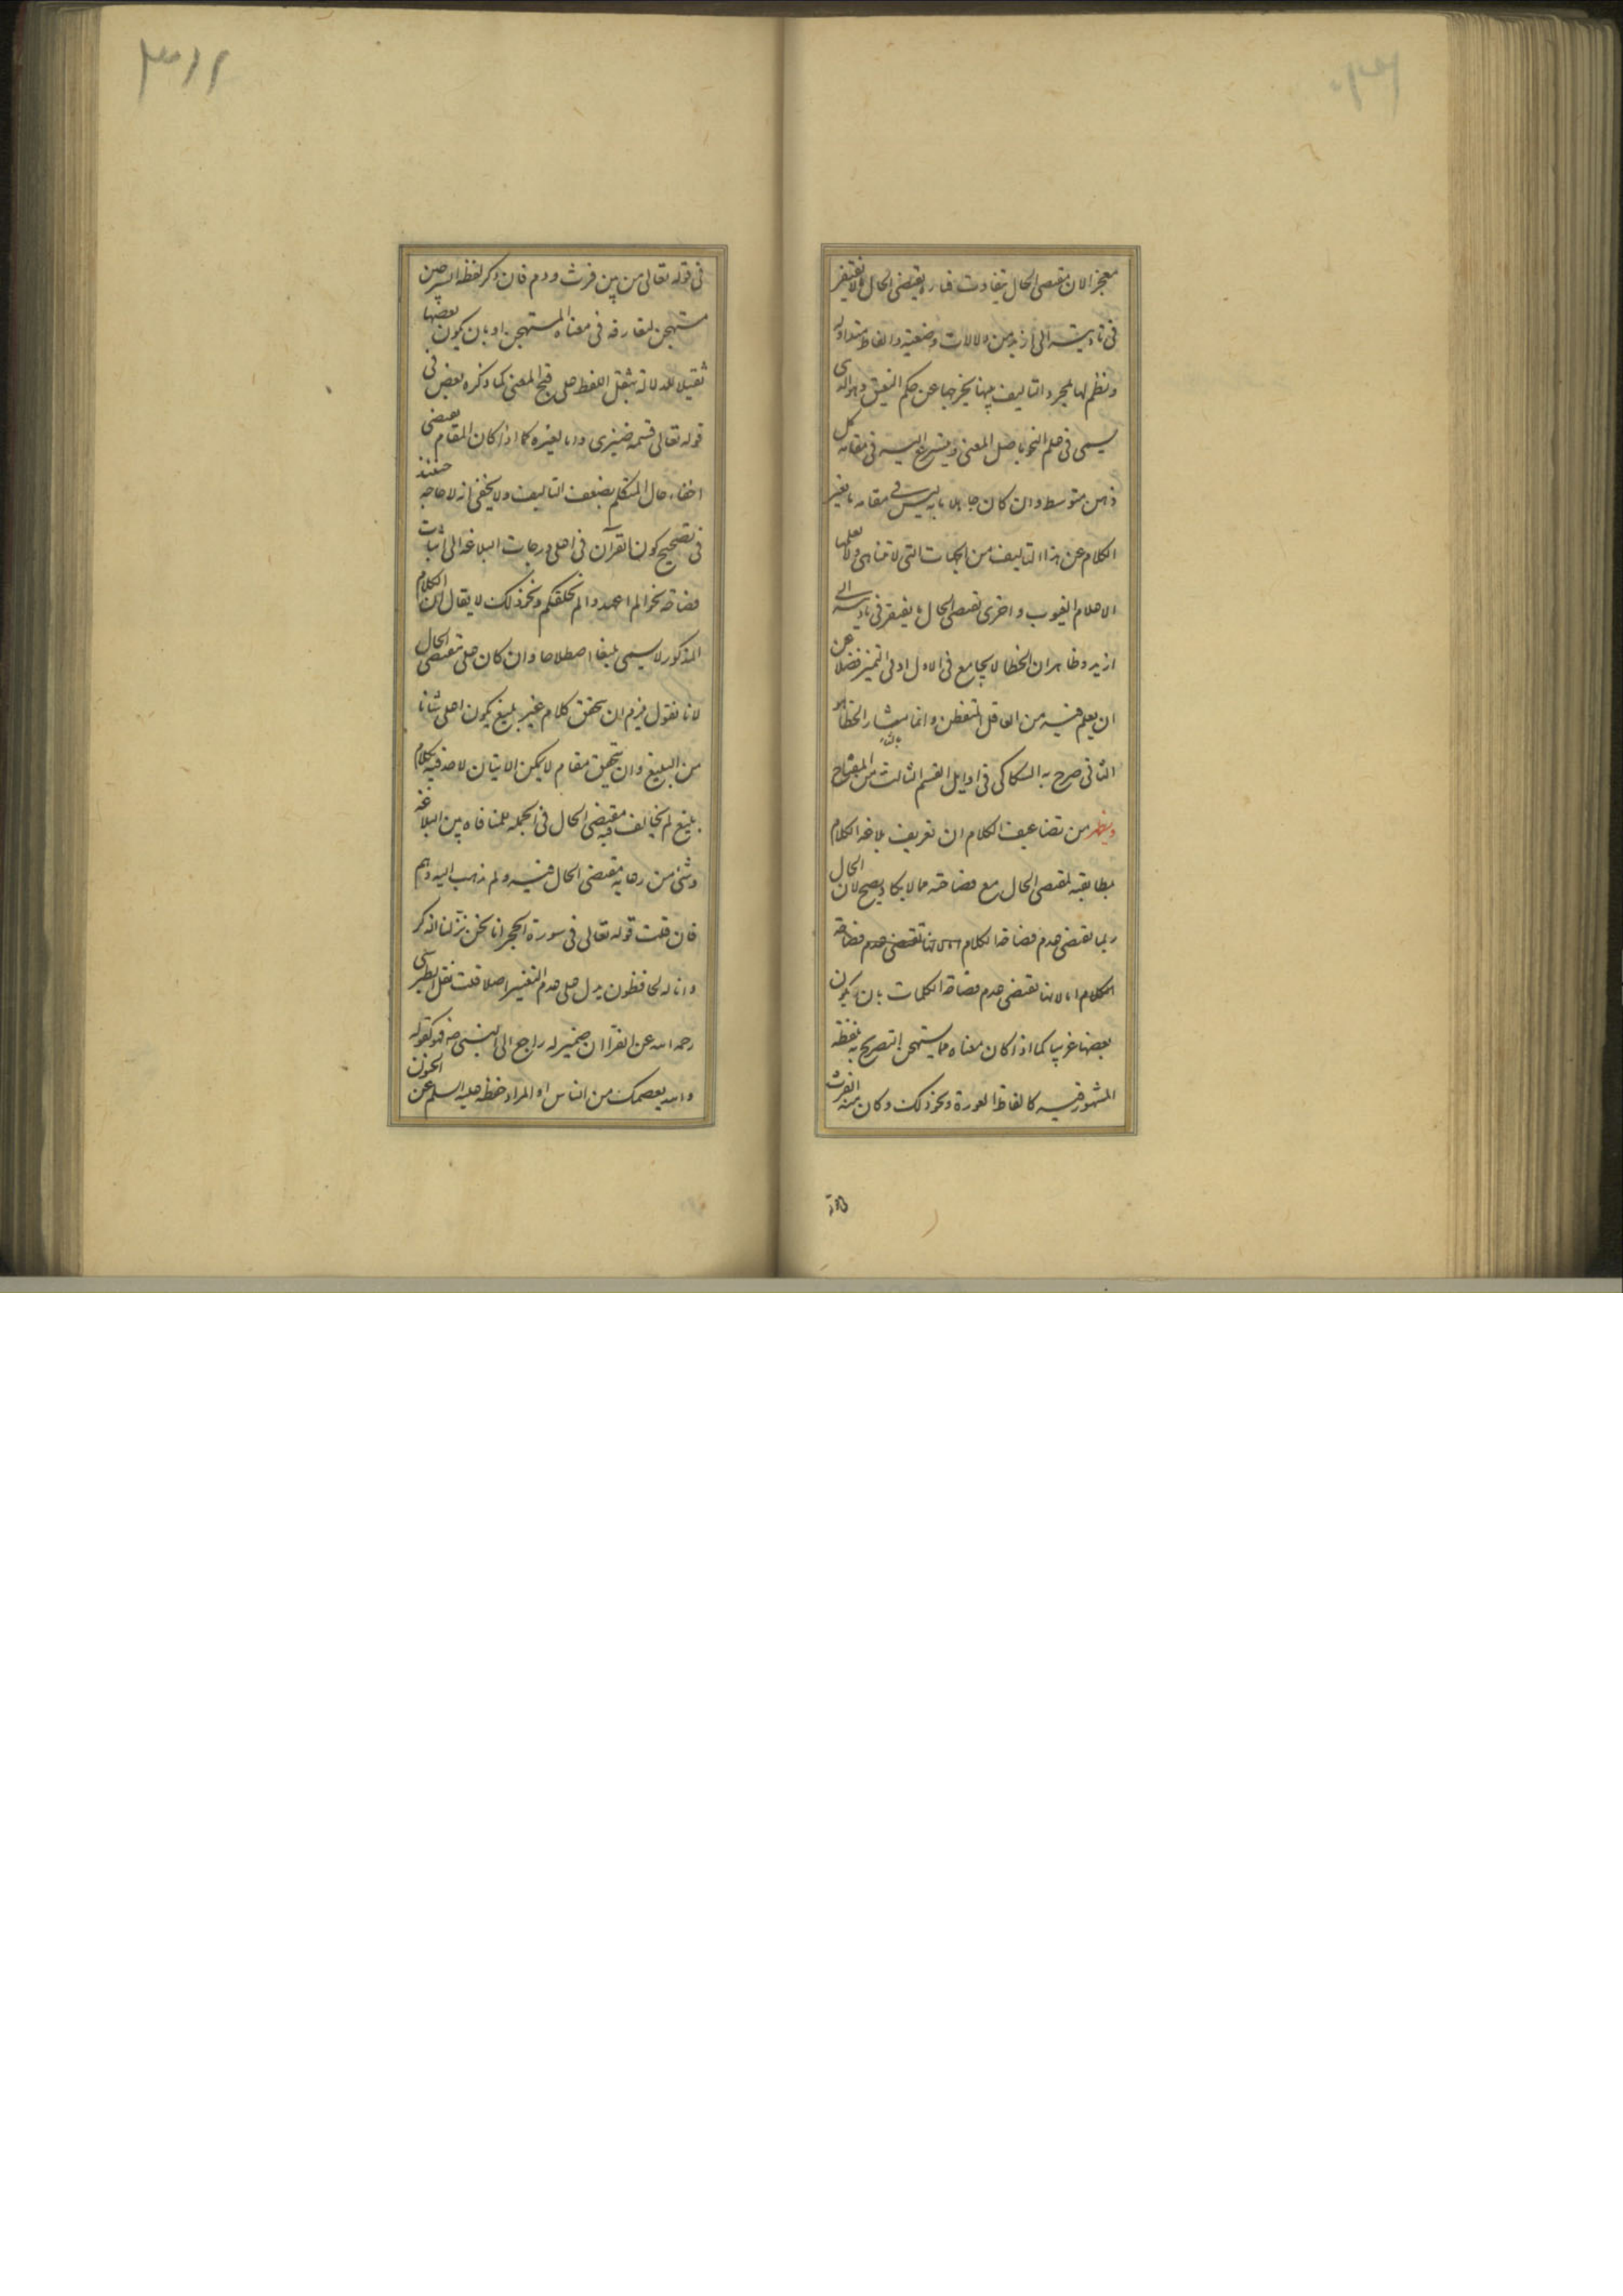 معجز الان مقتضى الحال يتفاوت فتارة يقتضى الحال ما لا يفتقر
فى تاديته الى ازيد من دلالات وضعية والفاظ متداوله
ونظم لها لمجرد التاليف بينها يخرجها عن حكم النعيق وهو الذى
يسمى فى علم النحو باصل المعنى ويتسرع اليه فى مقامه كل
ذهن متوسط وان كان جاهلا بانه ليس فى مقامه ما يغير
الكلام عن هذا التاليف من الجهات التى لا تتناهى ولا يعلمها
الا علام الغيوب واخرى تقتضى الحال ما يفتقر فى تاديته الى
ازيد وظاهر ان الخطا لا يجامع فى الاول ادنى التميز فضلا عن
ان يعلم فيه من العاقل المتفطن وانما مثار الخطا هو
الثانى صرح به السكاكى فى اوايل القسم الثالث من المفتاح
ويظهر من تضاعيف الكلام ان تعريف بلاغة الكلام
بمطابقته لمقتضى الحال مع فصاحته مما لا يكاد يصح لان الحال
ربما تقتضى عدم فصاحة الكلام تقتضى عدم فصاحة
الكلام اما لانها تقتضى عدم فصاحة الكلمات بان يكون
بعضها غريبا كما اذا كان معناه مما يستهجن التصريح بلفظه
المشهور فيه كالفاظ العورة ونحو ذلك وكان منه الفرث
فى قوله تعالى من بين فرث ودم فان ذكر لفظه السرجين
مستهجن لتعارفه فى معناه المستهجن او بان يكون بعضها
ثقيلا للدلالة بثقل اللفظ على قبح المعنى كما ذكره بعض فى
قوله تعالى قسمة ضيزى واما لغيره كما اذا كان المقام يقتضى
اخفاء حال المتكلم بضعف التاليف ولا يخفى انه لا حاجة حينئذ
فى تصحيح كون القرآن فى اعلى درجات البلاغة الى اثبات
فصاحة نحو الم اعهد والم نخلقكم ونحو ذلك لا يقال ان الكلام
المذكور لا يسمى بليغا اصطلاحا وان كان على مقتضى الحال
لانا نقول يلزم ان يتحقق كلام غير بليغ يكون اعلى شانا
من البليغ وان يتحقق مقام لا يمكن الاتيان لاحد فيه بكلام
بليغ لم يخالف فيه مقتضى الحال فى الجملة للمنافاة بين البلاغة
وشئ من رعاية مقتضى الحال فيه ولم يذهب اليه وهم
فان قلت قوله تعالى فى سورة الحجر انا نحن نزلنا الذكر
وانا له لحافظون يدل على عدم التغيير اصلا قلت نقل الطبرسى
رحمه الله عن الفراء ان ضمير له راجع الى النبى ص فهو كقوله
والله يعصمك من الناس او المراد حفظه عليه السلم عن الحزن